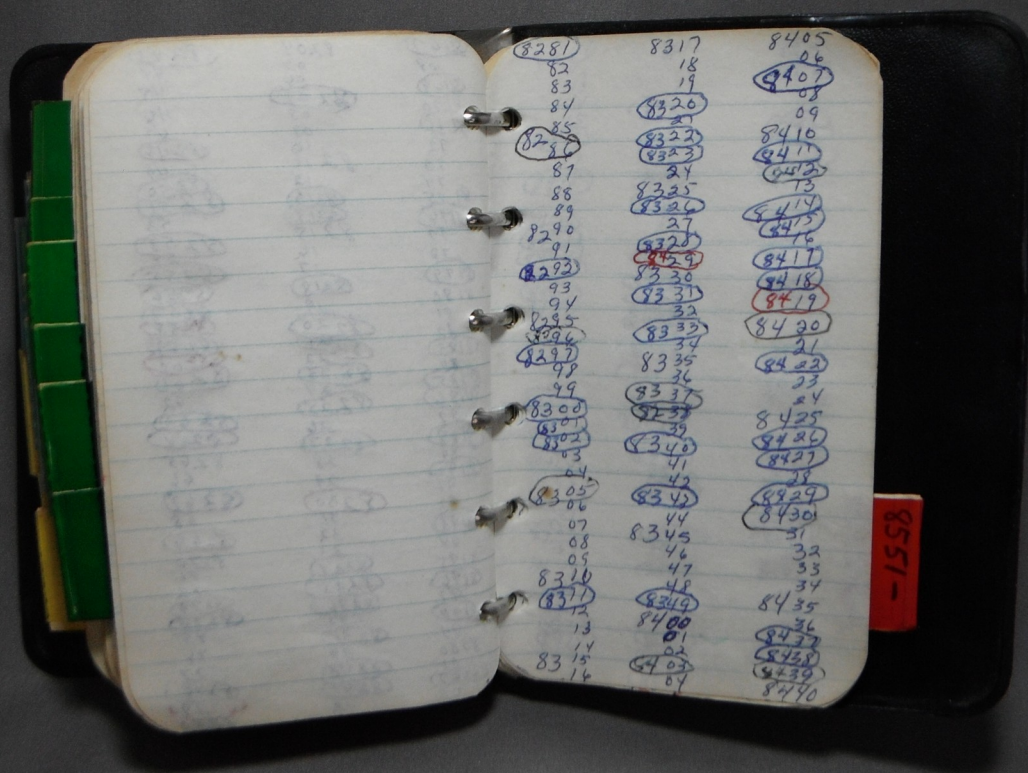 8281
82
83
84
85
8286
87
88
89
8290
91
8292
93
94
8295
8296
8297
98
99
8300
8301
8302
03
04
8305
06
07
08
09
8310
8311
12
13
14
8315
16
8317
18
19
8320
21
8322
8323
24
8325
8326
27
8328
8429
8330
8331
32
8333
34
8335
36
8337
8338
39
8340
41
42
8343
44
8345
46
47
48
8349
8400
01
02
8403
04
8405
06
8407
08
09
8410
8411
8412
13
8414
8415
16
8417
8418
8419
8420
21
8422
23
24
8425
8426
8427
28
8429
8430
31
32
33
34
8435
36
8437
8438
8439
8440
8551-